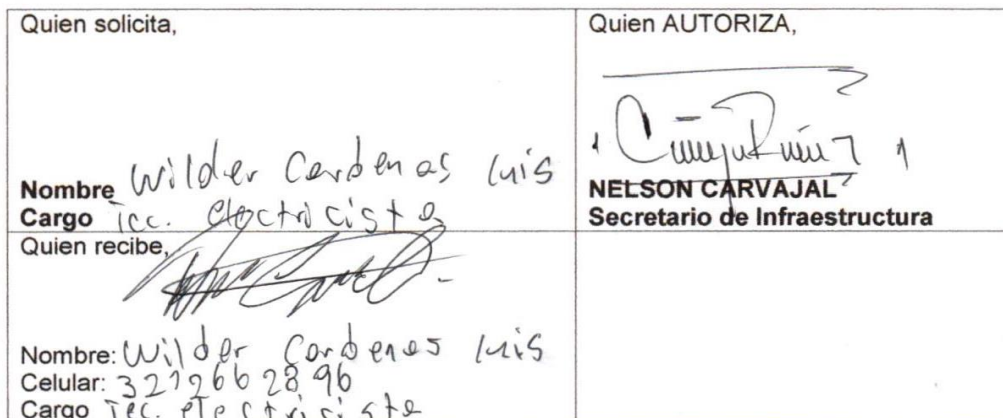 Quien solicita,
Nombre Wilder Cardenas Luis
Cargo Tec. electricista
Quien AUTORIZA,
NELSON CARVAJAL
Secretario de Infraestructura
Quien recibe,
Nombre: Wilder Cardenas Luis
Celular: 3212662896
Cargo Tec. electricista